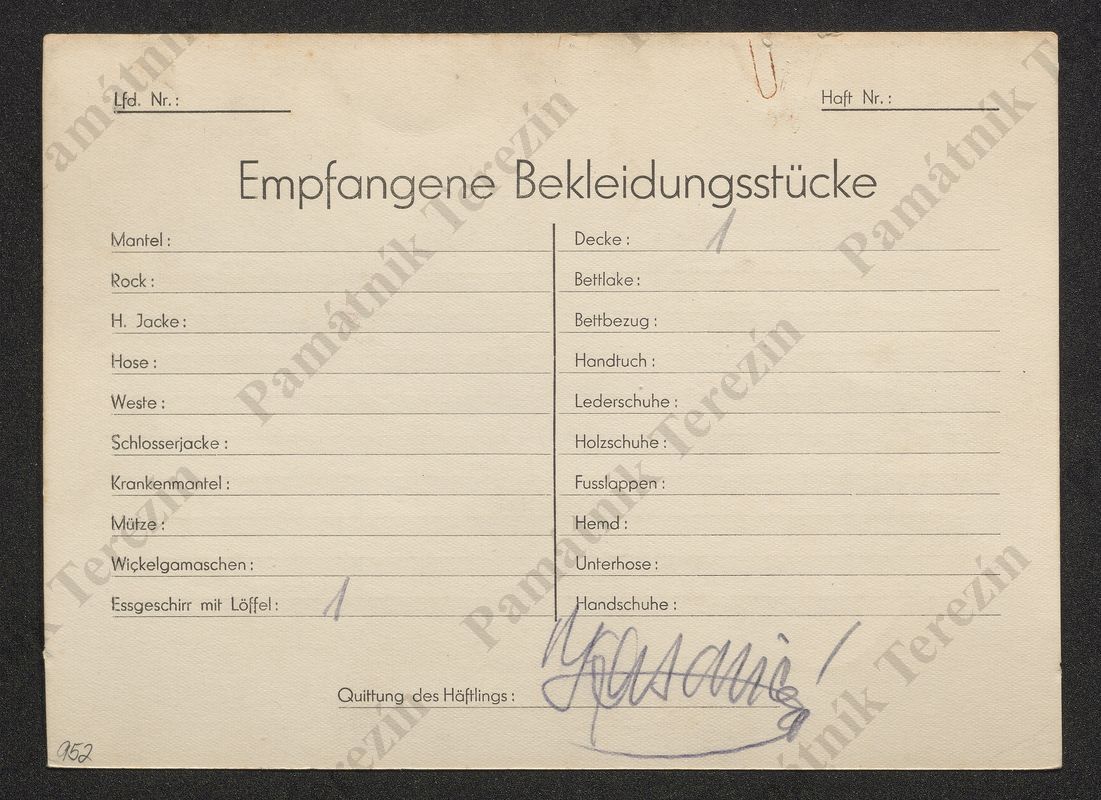 Lfd. Nr.:
Haft Nr.:
Empfangene Bekleidungsstücke
Mantel:
Rock:
H. Jacke:
Hose:
Weste:
Schlosserjacke:
Krankenmantel:
Mütze:
Wickelgamaschen:
Essgeschirr mit Löffel: 1
Decke: 1
Bettlake:
Bettbezug:
Handtuch:
Lederschuhe:
Holzschuhe:
Fusslappen:
Hemd:
Unterhose:
Handschuhe:
Quittung des Häftlings:
952
Památník Terezín